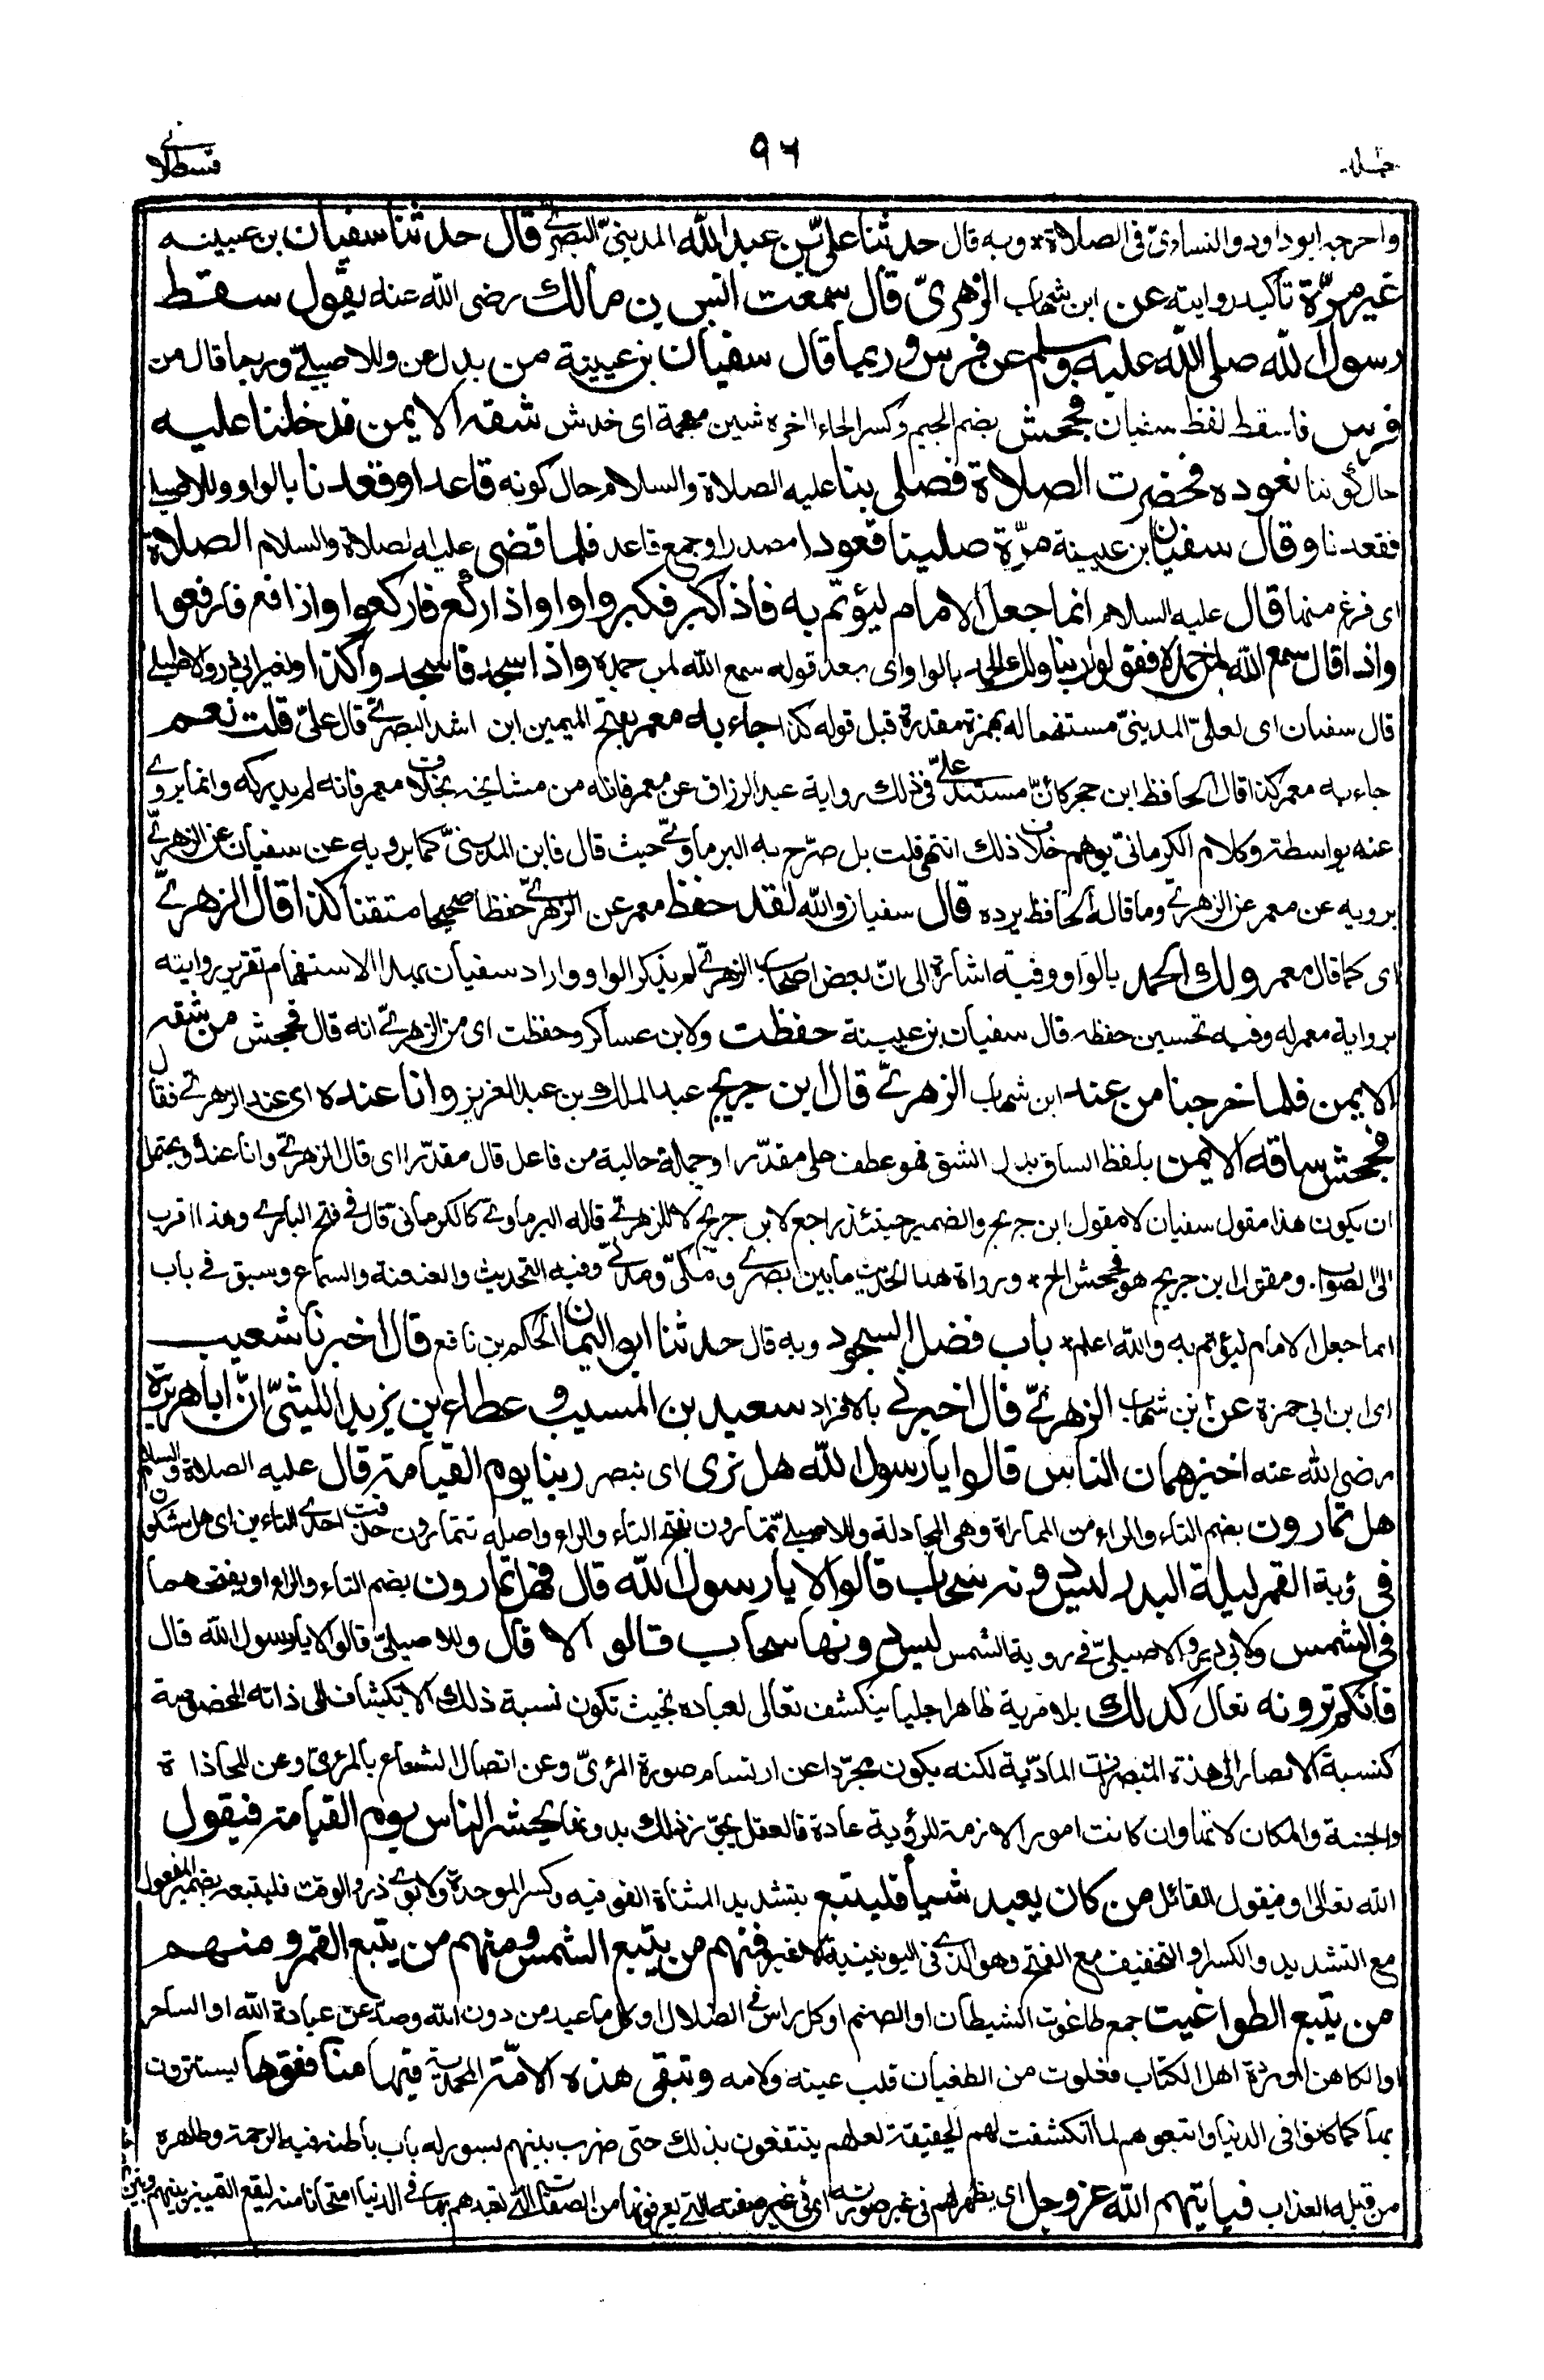 قسطلانے
٩٦
واخرجہ ابوداود والنساءیّ فی الصلاة * وبه قال حدثنا علیّ بن عبد الله المدینیّ البصریّ قال حدثنا سفیان بن عیینه
غیر مرّة تاکید روایته عن ابن شهاب الزهریّ قال سمعت انس بن مالك رضی الله عنه یقول سقط
رسول الله صلی الله علیه وسلم عن فرس وربما قال سفیان بن عیینة من بدل عن وللاصیلیّ وربما قال من
فرس فاسقط لفظ سفیان فجحش بضم الجیم وکسر الحاء اخره شین معجمة ای خدش شقه الایمن فدخلنا علیه
حال کوننا نعوده فحضرت الصلاة فصلی بنا علیه الصلاة والسلام حال کونه قاعدا وقعدنا بالواو وللاصیلی
فقعدنا وقال سفیان بن عیینة مرّة صلینا قعودا مصدر او جمع قاعد فلما قضی علیه الصلاة والسلام الصلاة
ای فرغ منها قال علیه السلام انما جعل الامام لیؤتم به فاذا کبر فکبروا واذا رکع فارکعوا واذا رفع فارفعوا
واذا قال سمع الله لمن حمده فقولوا ربنا ولك الحمد بالواو ای بعد قوله سمع الله لمن حمده واذا سجد فاسجدوا کذا ولغیر ابی ذر والاصیلی
قال سفیان ای لعلیّ المدینیّ مستفهما له بهمزة مقدرة قبل قوله کذا جاء به معمر بفتح المیمین ابن اشد البصریّ قال علیّ قلت نعم
جاء به معمر کذا قال الحافظ ابن حجر کانّ مستند علیّ فی ذلك روایة عبد الرزاق عن معمر فانه من مشایخه بخلاف معمر فانه لم یدرکه وانما یروے
عنه بواسطة وکلام الکرمانیّ یوهم خلاف ذلك انتهی قلت بل صرّح به البرماویّ حیث قال فابن المدینیّ کما یرویه عن سفیان عن الزهریّ
یرویه عن معمر عن الزهریّ وما قاله الحافظ یرده قال سفیان والله لقد حفظ معمر عن الزهریّ حفظا صحیحا متقنا کذا قال الزهریّ
ای کما قال معمر ولك الحمد بالواو وفیه اشارة الی انّ بعض اصحاب الزهریّ لم یذکر الواو واراد سفیان بهذا الاستفهام تقریر روایته
بروایة معمر له وفیه تحسین حفظه قال سفیان بن عیینة حفظت ولابن عساکر وحفظت ای من الزهریّ انه قال فجحش من شقه
الایمن فلما خرجنا من عند ابن شهاب الزهریّ قال ابن جریج عبد الملك بن عبد العزیز وانا عنده ای عند الزهریّ فقال
فجحش ساقه الایمن بلفظ الساق بدل الشق فهو عطف علی مقدّر او جملة حالیة من فاعل قال مقدّرا ای قال الزهریّ وانا عنده ویحتمل
ان یکون هذا مقول سفیان لا مقول ابن جریج والضمیر حینئذ راجع لابن جریج لا للزهریّ قاله البرماویّ کالکرمانیّ قال فی فتح الباری وهذا اقرب
الی الصواب. ومقول ابن جریج هو فجحش الخ * ورواة هذا الحدیث ما بین بصریّ ومکیّ ومدنیّ وفیه التحدیث والعنعنة والسماع وسبق فے باب
انما جعل الامام لیؤتم به والله اعلم * باب فضل السجود وبه قال حدثنا ابو الیمان الحکم بن نافع قال اخبرنا شعیب
ای ابن ابی حمزة عن ابن شهاب الزهریّ قال اخبرنی بالافراد سعید بن المسیب وعطاء بن یزید اللیثیّ انّ ابا هریرة
رضی الله عنه اخبرهما ان الناس قالوا یا رسول الله هل نری ای نبصر ربنا یوم القیامة قال علیه الصلاة والسلام
هل تمارون بضم التاء والراء من المماراة وهی المجادلة وللاصیلیّ تمارون بفتح التاء والراء واصله تتمارون حذفت احدی التاءین ای هل تشکون
فی رؤیة القمر لیلة البدر لیس دونه سحاب قالوا لا یا رسول الله قال فهل تمارون بضم التاء والراء او بفتحهما
فی الشمس ولابی ذر والاصیلیّ فی رویة الشمس لیس دونها سحاب قالوا لا قال وللاصیلیّ قالوا لا یا رسول الله قال
فانکم ترونه تعالی کذلك بلا مریة ظاهرا جلیا ینکشف تعالی لعباده بحیث تکون نسبة ذلك الانکشاف الی ذاته المخصوصة
کنسبة الابصار الی هذه المبصرات المادّیة لکنه یکون مجرّدا عن ارتسام صورة المرئیّ وعن اتصال الشعاع بالمرئیّ وعن المحاذاة
والجهة والمکان لانها وان کانت امورا لازمة للرؤیة عادة فالعقل یجوّز ذلك بدونها یحشر الناس یوم القیامة فیقول
الله تعالی او فیقول القائل من کان یعبد شیأ فلیتبع بتشدید المثناة الفوقیه وکسر الموحدة ولابوی ذر والوقت فلیتبعه بضمیر المفعول
مع التشدید والکسر او التخفیف مع الفتح وهو الذی فی الیونینیة لا غیر فمنهم من یتبع الشمس ومنهم من یتبع القمر ومنهم
من یتبع الطواغیت جمع طاغوت الشیطان او الصنم او کل راس فی الضلال او کل ما عبد من دون الله وصدّ عن عبادة الله او الساحر
او الکاهن او مردة اهل الکتاب فعلوت من الطغیان قلب عینه ولامه وتبقی هذه الامّة المحمدیة فیها منافقوها یستترون
بها کما کانوا فی الدنیا واتبعوهم لما انکشفت لهم الحقیقة لعلهم ینتفعون بذلك حتی ضرب بینهم بسور له باب باطنه فیه الرحمة وظاهره
من قبله العذاب فیاتیهم الله عز وجل ای یظهر لهم فی غیر صورته ای فی غیر صفته التی یعرفونها من الصفات التی تعبدهم بها فی الدنیا امتحانا منه لیقع التمییز بینهم وبین